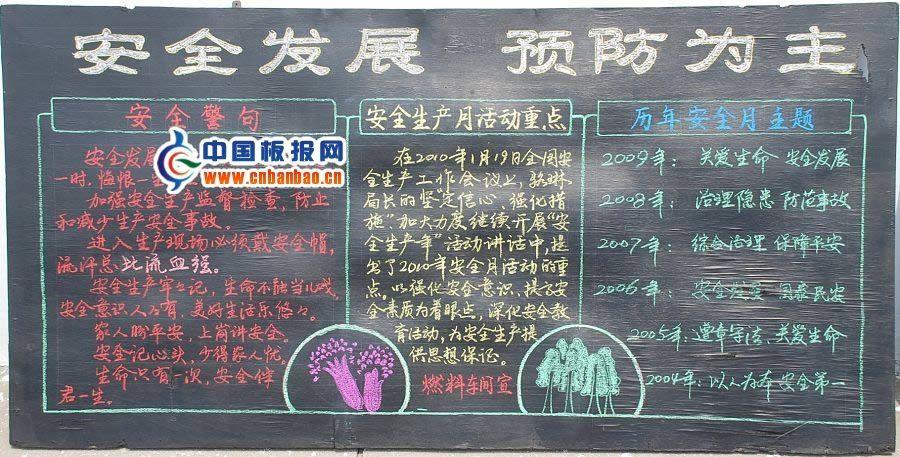 安全发展 预防为主
安全警句
安全发展
一时,悔恨一
加强安全生产监督检查,防止
和减少生产安全事故。
进入生产现场必须戴安全帽,
流汗总比流血强。
安全生产牢牢记,生命不能当儿戏
安全意识人人有,美好生活乐悠々。
家人盼平安,上岗讲安全。
安全记心头,少得家人忧。
生命只有一次,安全伴
君一生。
中国板报网
www.cnbanbao.cn
安全生产月活动重点
在2010年1月19日全国安
全生产工作会议上,骆琳
局长的"坚定信心、强化措
施"加大力度继续开展"安
全生产年"活动讲话中,提
出了2010年安全月活动的重
点。以强化安全意识、提高安
全素质为着眼点,深化安全教
育活动,为安全生产提
供思想保证。
燃料车间宣
历年安全月主题
2009年:关爱生命 安全发展
2008年:治理隐患 防范事故
2007年:综合治理 保障平安
2006年:安全发展 国泰民安
2005年:遵章守法、关爱生命
2004年:以人为本 安全第一